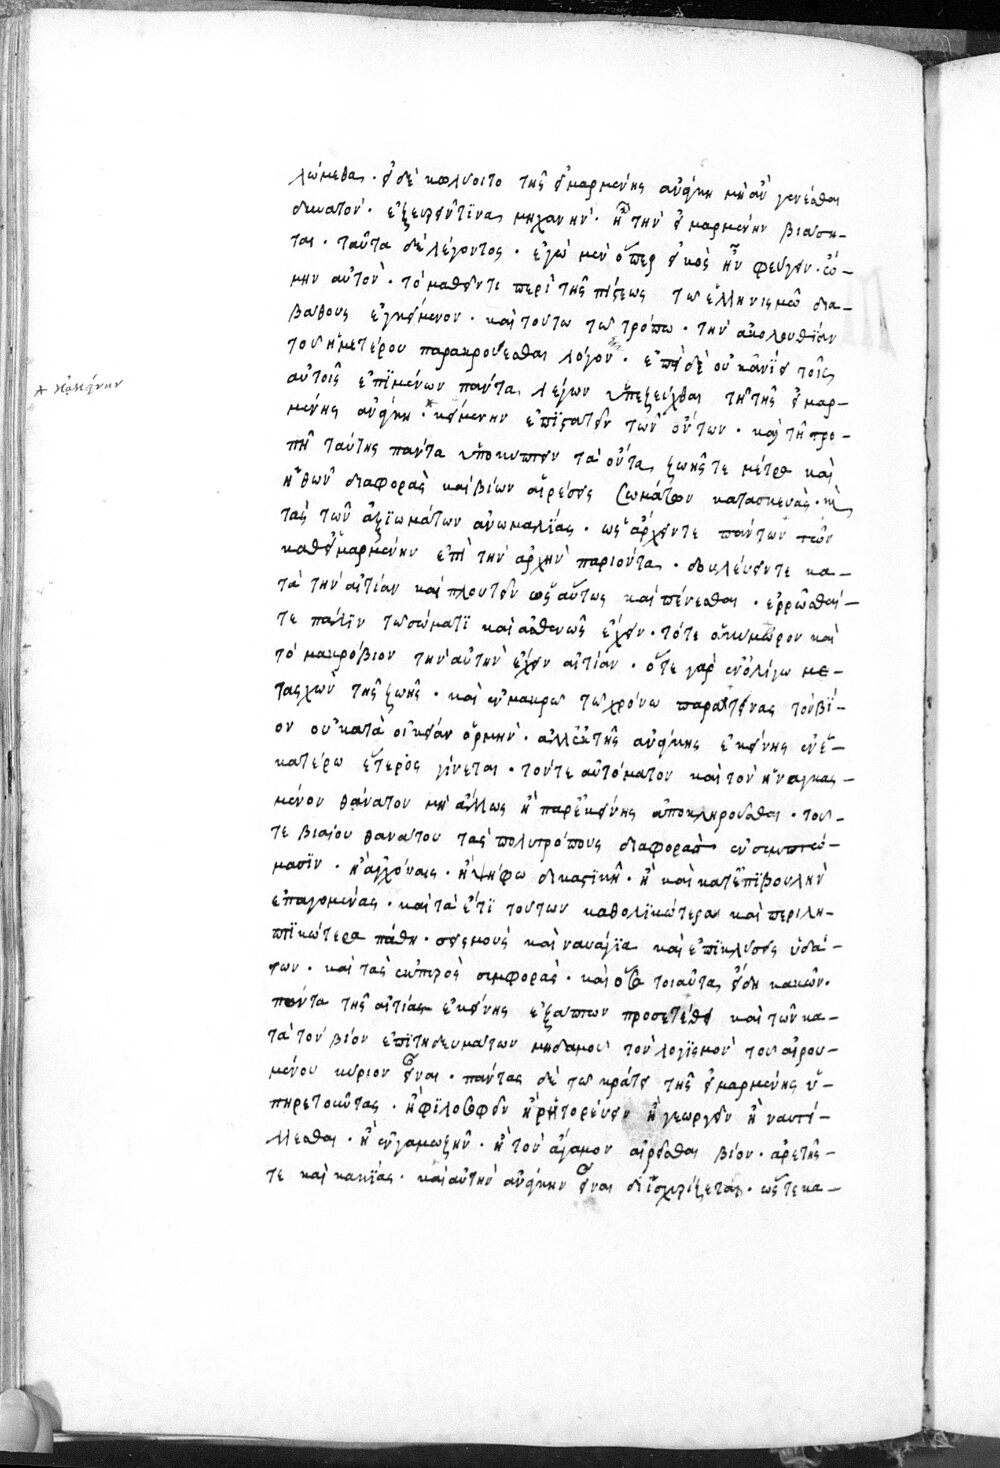 λώμεθα. εἰ δὲ κωλύοιτο τῆς εἱμαρμένης ἀνάγκη μὴ ἂν γενέσθαι
δυνατόν. ἐξευρεῖν τινα μηχανὴν. ἢ τὴν εἱμαρμένην βιάση-
ται. ταῦτα δὲ λέγοντος. ἐγὼ μὲν ὅπερ εἰκὸς ἦν φεύγειν ᾤ-
μην αὐτὸν. τὸ μαθεῖν τι περὶ τῆς πίστεως τῶ ἑλληνισμῶ δια-
βάθους ἐγκείμενον. καὶ τούτω τῶ τρόπω. τὴν ἀκολουθίαν
τοῦ ἡμετέρου παρακρούεσθαι λόγου. ἐπεὶ δὲ οὐκ ἀνίει τοῖς
αὐτοῖς ἐπιμένων πάντα λέγων ὑπεζεύχθαι τῆ τῆς εἱμαρ-
* κἀκείνην
μένης ἀνάγκη. * κειμένην ἐπιστατεῖν τῶν ὄντων. καὶ τῆ ῥο-
πῆ ταύτης πάντα ὑποκύπτειν τὰ ὄντα, ζωῆς τε μέτρα καὶ
ἠθῶν διαφορὰς καὶ βίων αἱρέσεις σωμάτων κατασκευὰς. καὶ
τὰς τῶν ἀξιωμάτων ἀνωμαλίας. ὡς ἄρχειν τε πάντων τῶν
καθ' εἱμαρμένην ἐπὶ τὴν ἀρχὴν παριόντα. δουλεύειν τε κα-
τὰ τὴν αἰτίαν καὶ πλουτεῖν ὡσαύτως καὶ πένεσθαι. ἐρρῶσθαί-
τε πάλιν τῶ σώματι καὶ ἀσθενῶς ἔχειν. τό τε ὠκύμωρον καὶ
τὸ μακρόβιον τὴν αὐτὴν ἔχειν αἰτίαν. ὅτε γὰρ ἐν ὀλίγω με-
τασχὼν τῆς ζωῆς. καὶ ἐν μακρῶ τῶ χρόνω παρατείνας τὸν βί-
ον οὐ κατὰ οἰκείαν ὁρμὴν. ἀλλ' ἐκ τῆς ἀνάγκης ἐκείνης ἐν ἑ-
κατέρω ἕτερος γίνεται. τόν τε αὐτόματον καὶ τὸν ἠναγκας-
μένον θάνατον μὴ ἄλλως ἢ παρ' ἐκείνης ἀποκληροῦσθαι. τοῦ-
τε βιαίου θανάτου τὰς πολυτρόπους διαφορὰς ἐν συμπτώ-
μασιν. ἢ ἀγχόναις. ἢ ψήφω δικαστικῆ. ἢ καὶ κατ' ἐπιβουλὴν
ἐπαγομένας. καὶ τὰ ἔτι τούτων καθολικώτερα καὶ περιλη-
πτικώτερα πάθη. σεισμοὺς καὶ ναυάγια καὶ ἐπικλύσεις ὑδά-
των. καὶ τὰς ἐκ πυρὸς συμφορὰς. καὶ ὅσα τοιαῦτα εἴδη κακῶν.
πάντα τῆς αἰτίας ἐκείνης ἐξάπτων προσετίθει καὶ τῶν κα-
τὰ τὸν βίον ἐπιτηδευμάτων μηδαμοῦ τὸν λογισμὸν τοῦ αἱρου-
μένου κύριον εἶναι. πάντας δὲ τῶ κράτει τῆς εἱμαρμένης ὑ-
πηρετοῦντας. ἢ φιλοσοφεῖν ἢ ῥητορεύειν ἢ γεωργεῖν ἢ ναυτί-
λλεσθαι. ἢ ἐν γάμω ζῆν. ἢ τὸν ἄγαμον αἱρεῖσθαι βίον. ἀρετῆς-
τε καὶ κακίας. καὶ αὐτὴν ἀνάγκην εἶναι διϊσχυρίζεται. ὥστε κα-